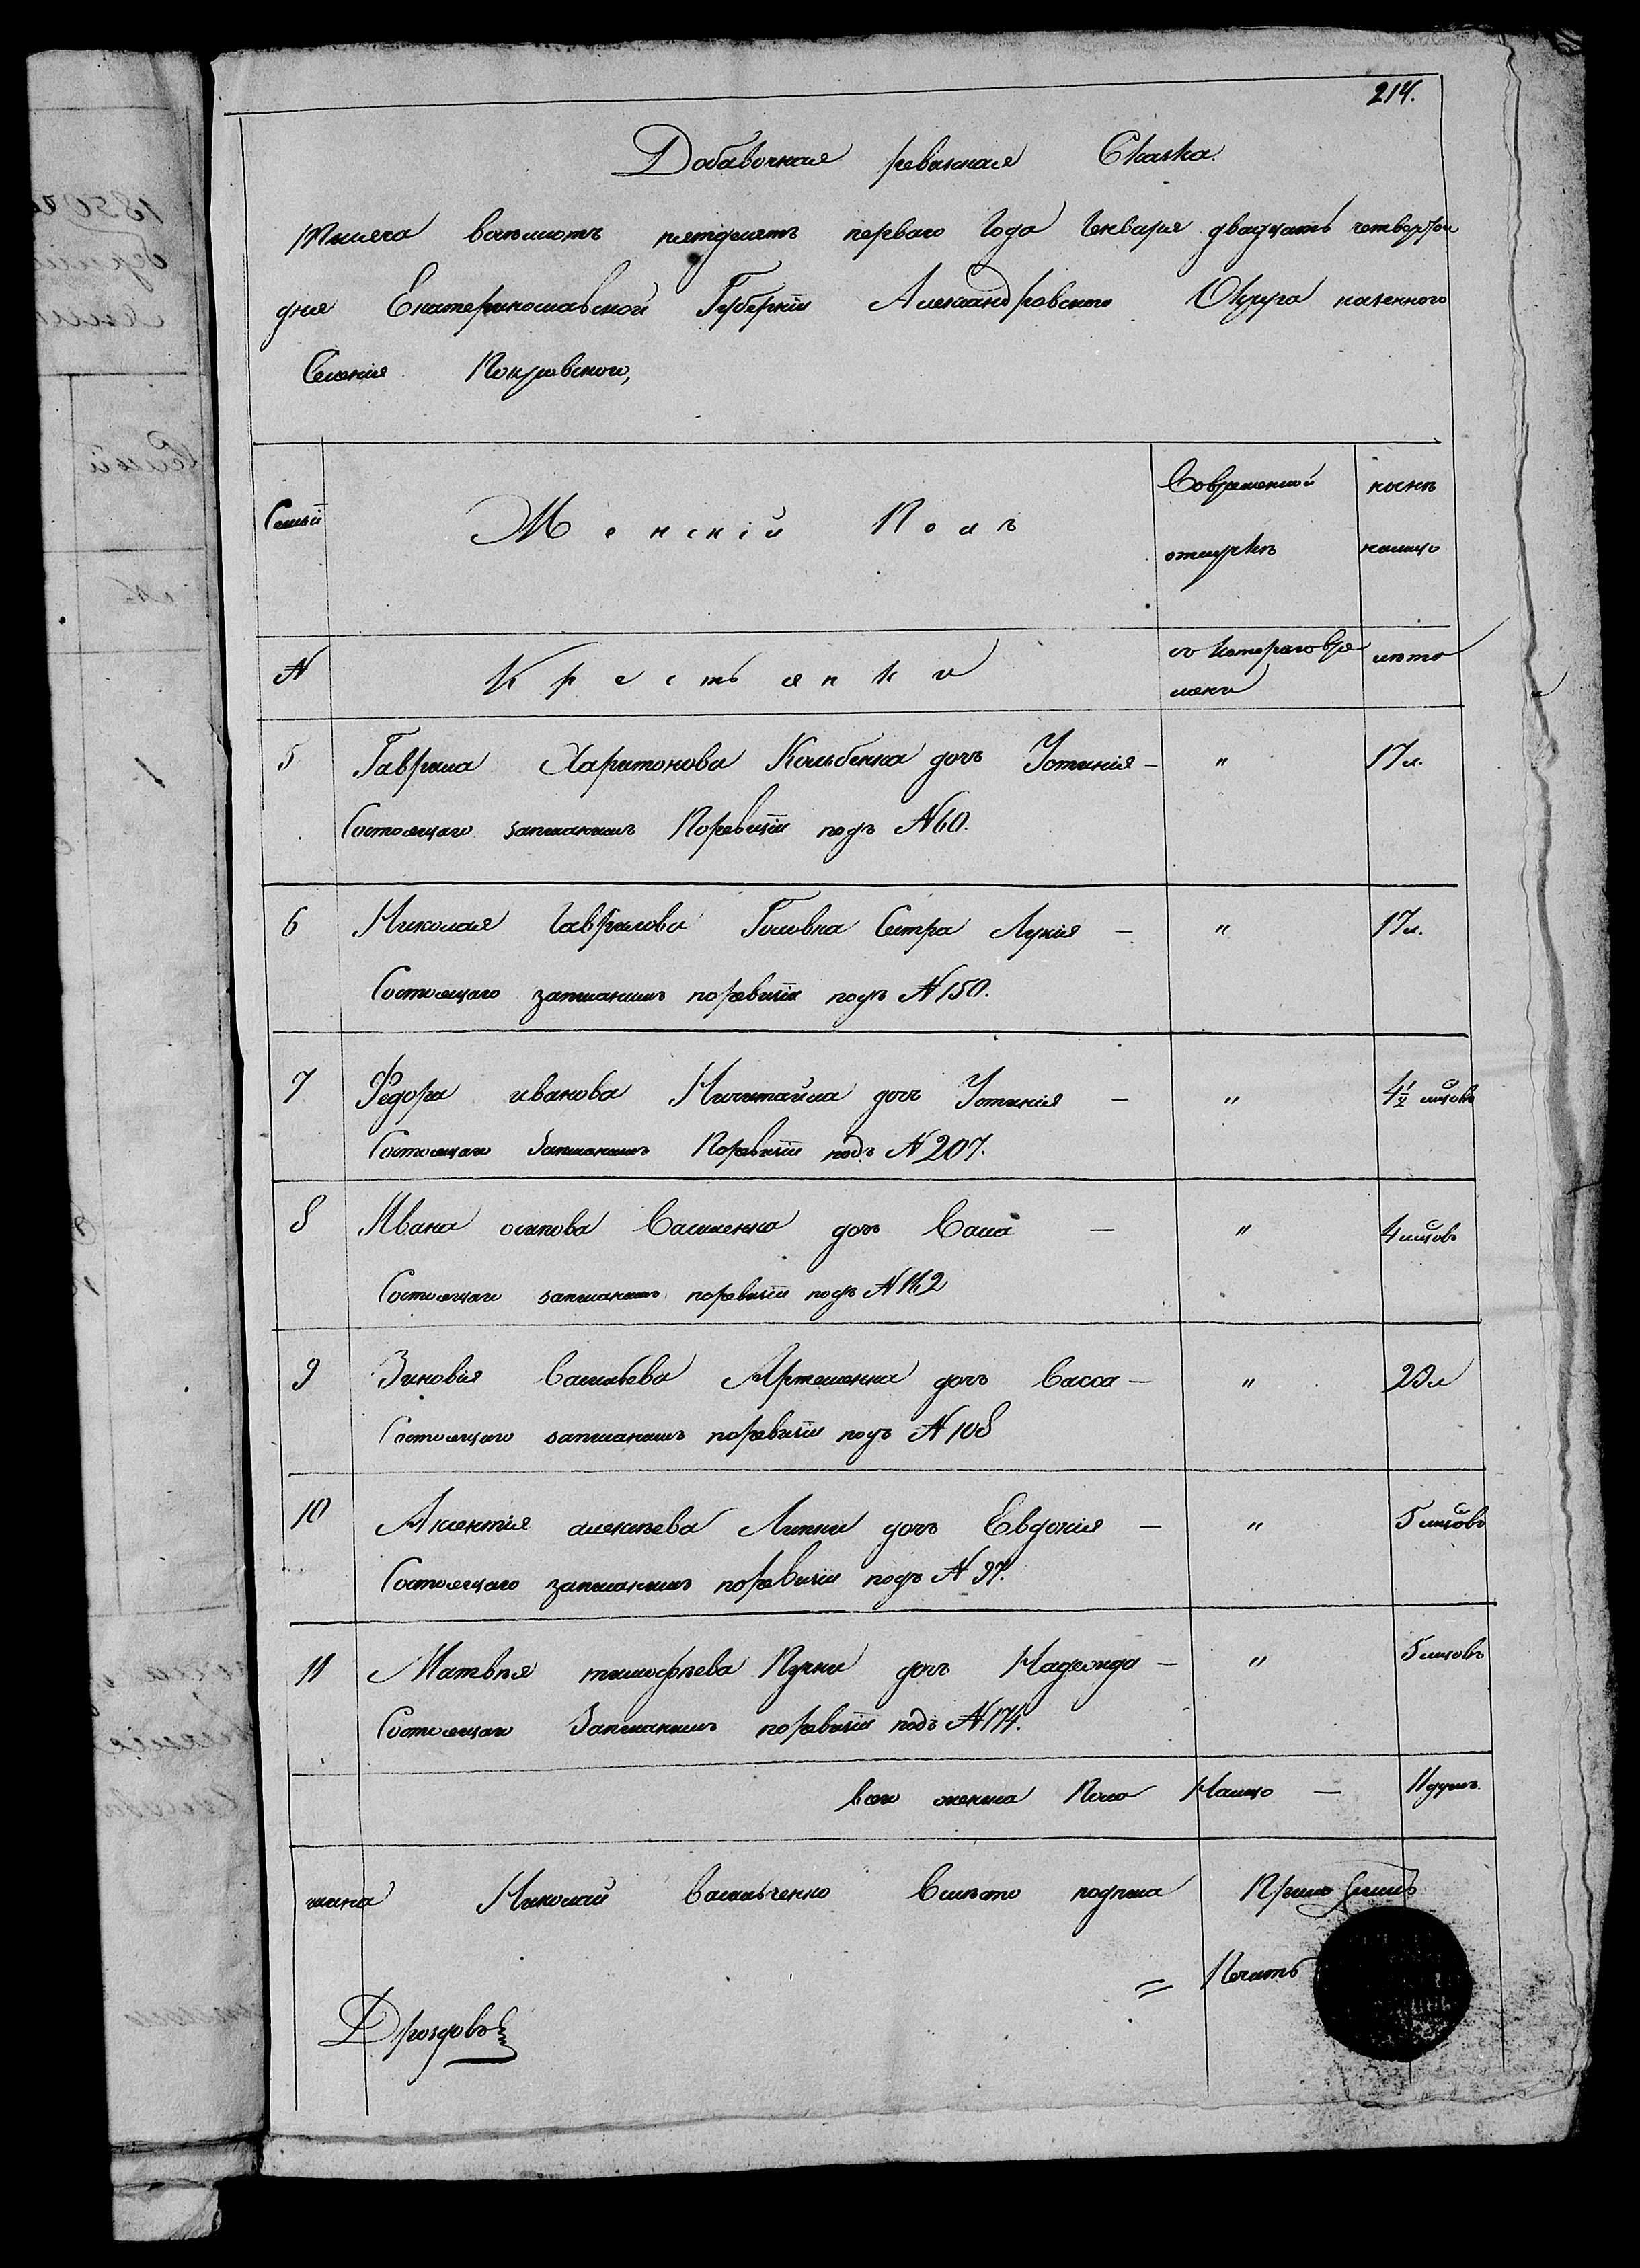 214.
Добавочная ревизская Сказка.
тысяча восемьсотъ пятдесятъ перваго Года Генваря двадцать четвертаго
дня Екатеринославской Губерніи Александровского Округа казенного
Селенія Покровского,
Семьи
Женскій Полъ
Вовременной отлучкѣ
нынѣ налицо
№
Крестьянки
съ котораго времени
лѣта
5 Гаврила Харитонова Колибенка дочь Устинія — " 17 л.
Состоящаго записаннымъ Поревизіи подъ № 60.
6 Николая Гаврилова Головка Сестра Лукія — " 17 л.
Состоящаго записаннымъ поревизіи подъ № 150.
7 Федора иванова дочь Устинія — " 4½
Состоящаго Записаннымъ Поревизіи подъ № 207.
8 Ивана осипова дочь — " 4
Состоящаго записаннымъ поревизіи подъ №
9 Зиновія Васильева Артеменка дочь Васса — " 20 л
Состоящаго записаннымъ поревизіи подъ № 108
10 Аксентія алексѣева Липки дочь Евдокія — " 5
Состоящаго записаннымъ поревизіи подъ № 97.
11 Матвѣя тимофѣева дочь Надежда — " 5
Состоящаго Записаннымъ поревизіи подъ № 174.
всего женска Пола Налицо — 11 душъ.
Николай Васильченко вмѣсто подписа Приложилъ
= Печать
Дроздовъ